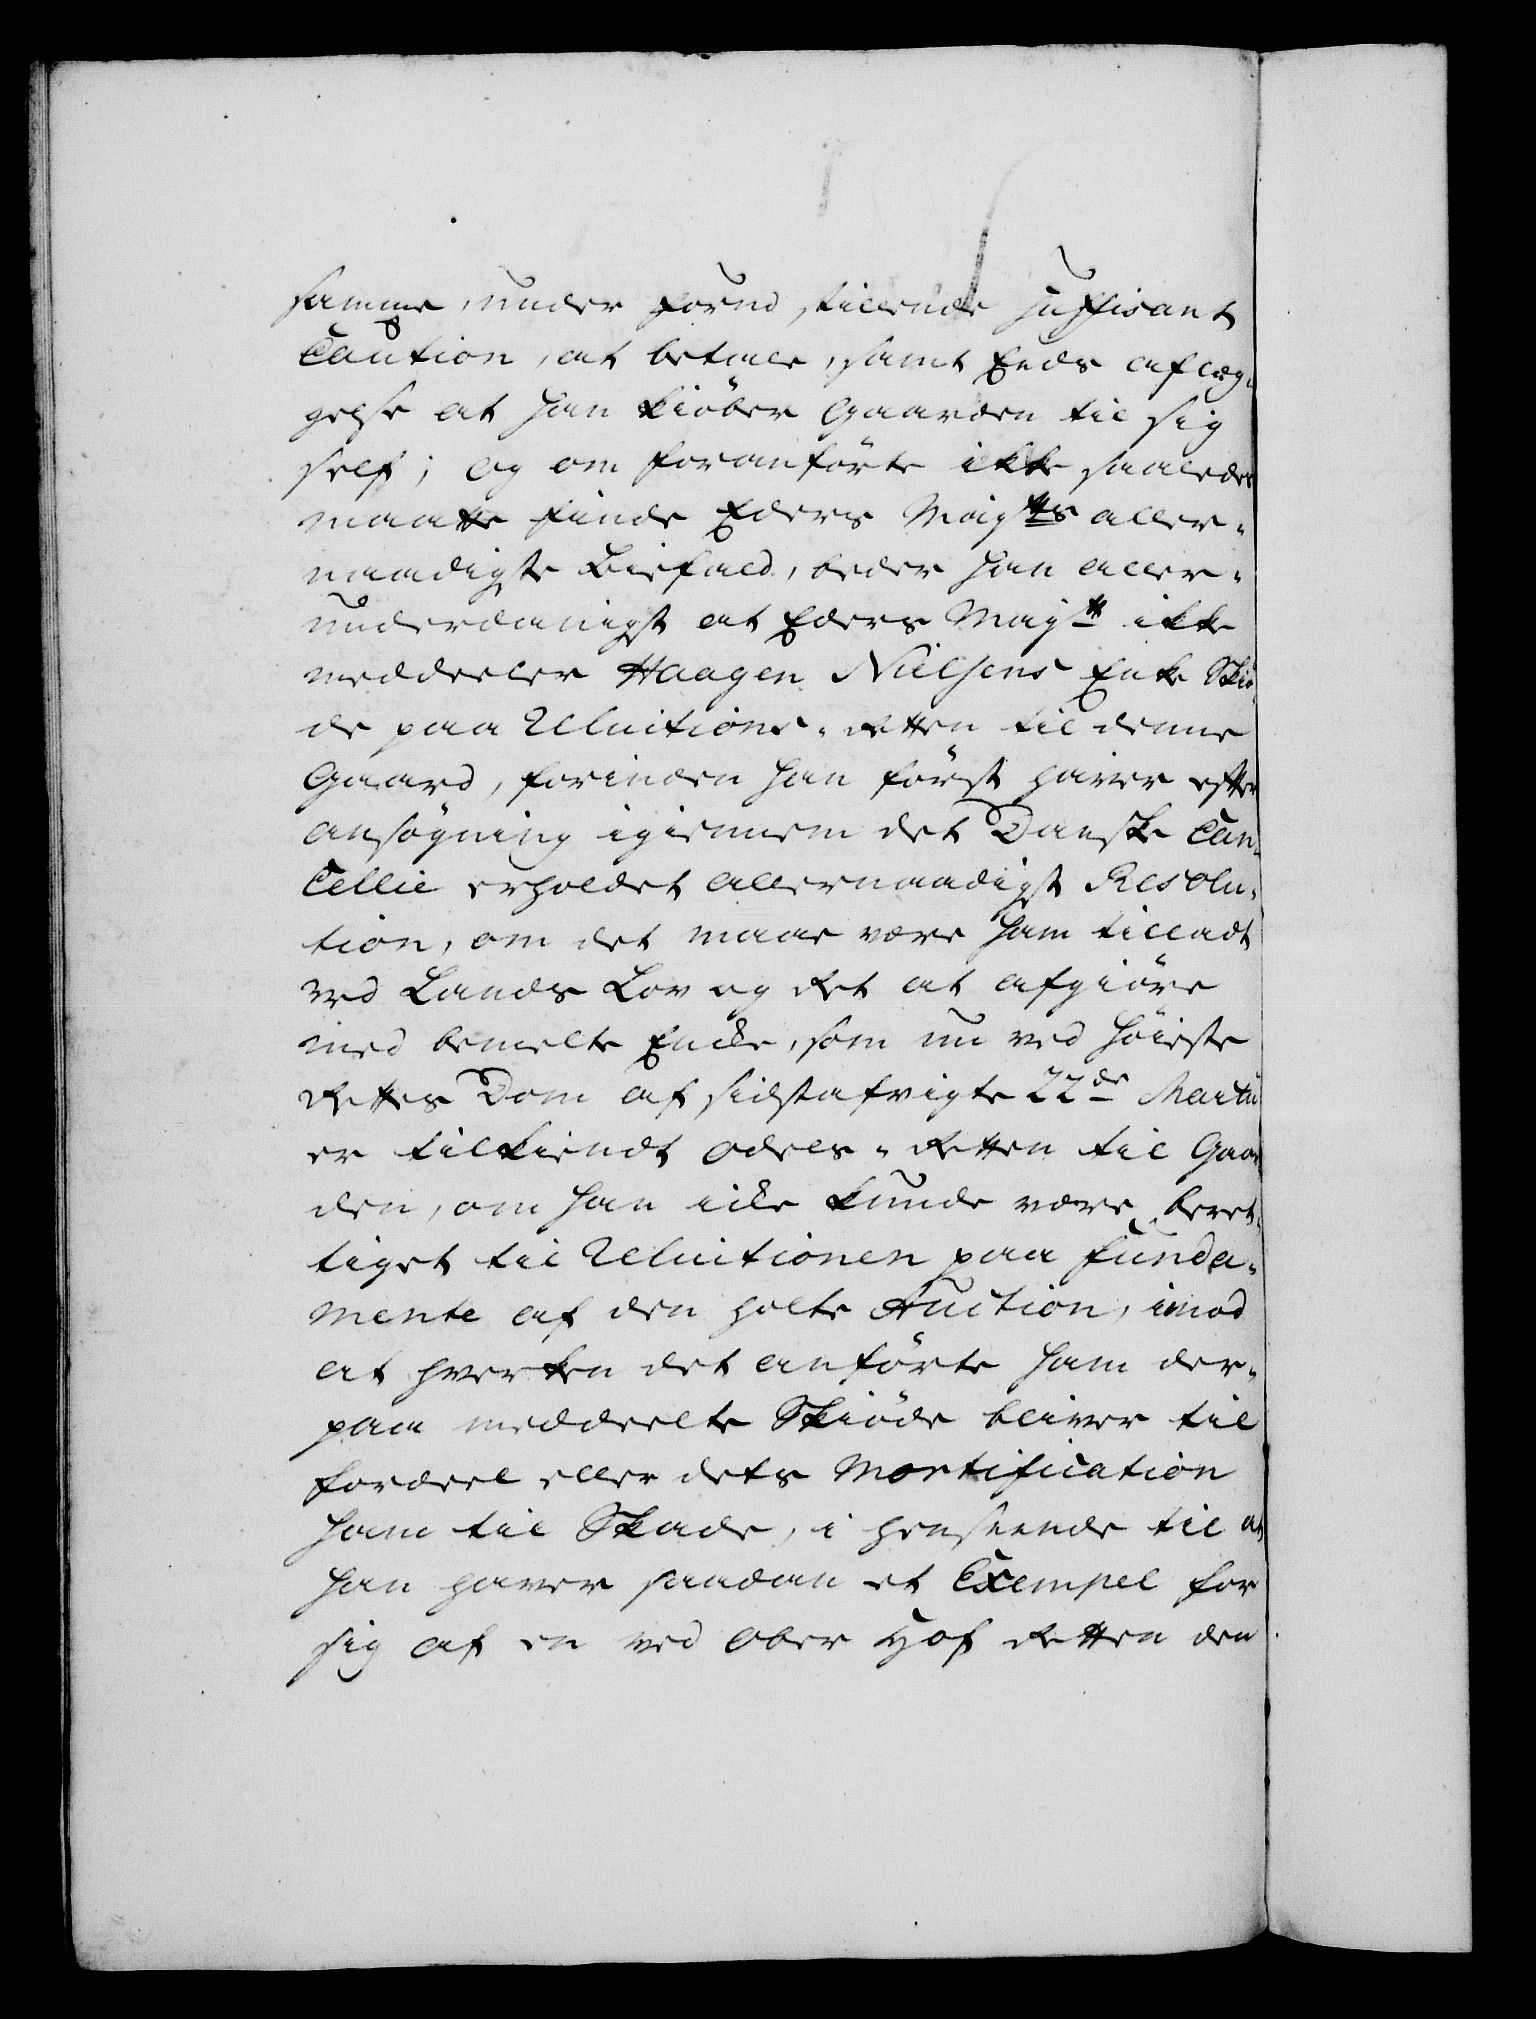 samme, under forud stillende suffisant
Caution, at betale, samt Eeds aflæg-
gelse at han kiöber Gaarden til sig
self; og om foranförte ikke saaledes
maatte finde Eders Mayts aller-
naadigste Biefald, beder han aller-
underdanigst at Eders Mayt ikke
meddeeler Haagen Nielsens Enke Skiö-
de paa Reluitions-Retten til denne
Gaard, forinden han först haver efter
ansögning igiennem det Danske Can-
cellie erholdet allernaadigst Resolu-
tion, om det maae være ham tilladt
ved Lands Lov og Ret at afgiöre
med bemelte Encke, som nu ved Höieste
Rettes Dom af sidstafvigte 22de Martii
er tilkiendt Odels-Retten til Gaar
den, om han icke kunde være beret-
tiget til Reluitionen paa funda-
mente af den holte Auction, imod
at hverken det anförte ham der-
paa meddeelte Skiöde bliver til
fordeel eller dets Mortification
ham til Skade, i henseende til at
han haver saadan et Exempel for
sig af en ved Ober Hof Retten den